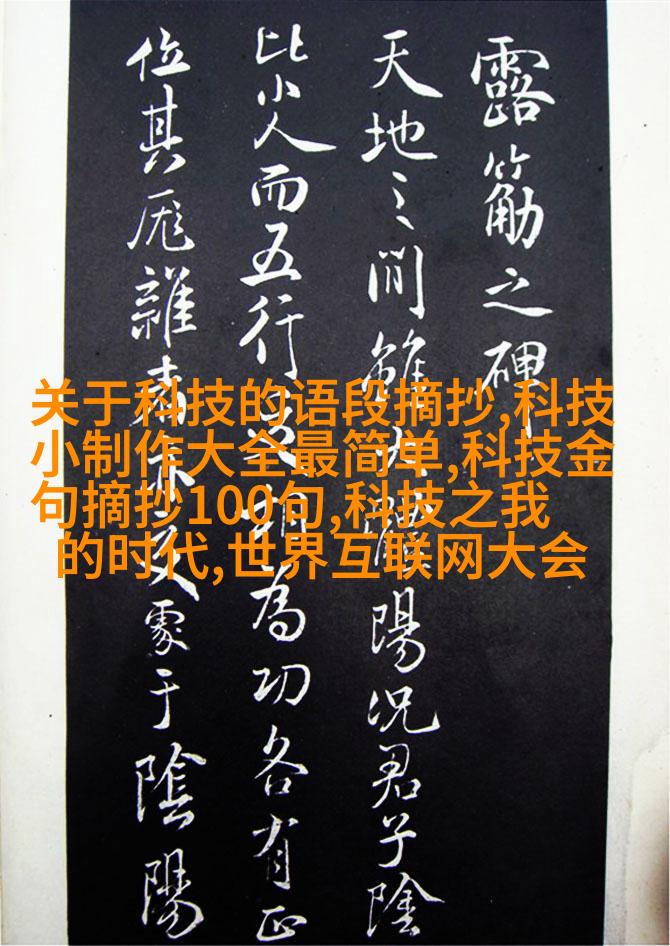 露筋之碑
天地之間雖大體陽況君子陰
比小人而五行更相為功各有正
位其厖雜亦交處于陰陽
关于科技的语段摘抄,科技
小制作大全最简单,科技金
句摘抄100句,科技之我
的时代,世界互联网大会